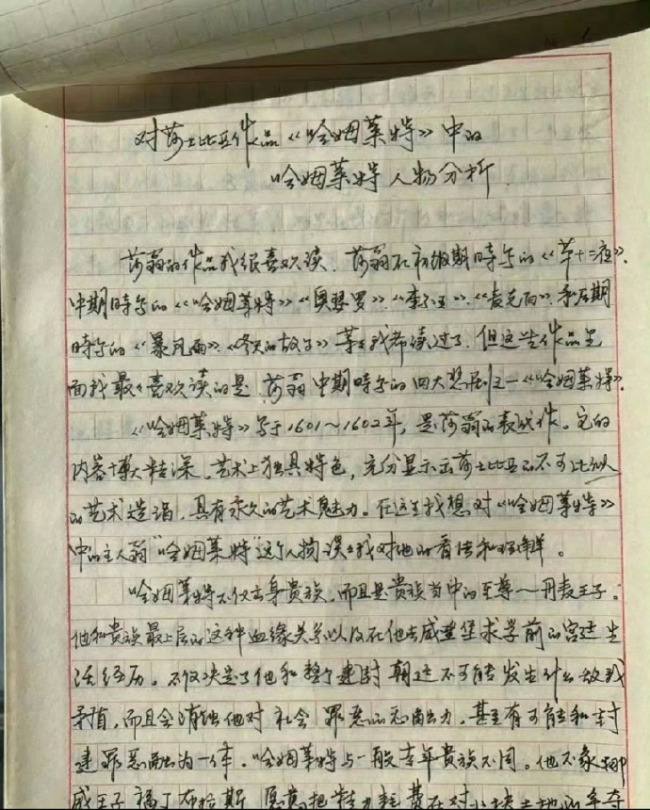 对莎士比亚作品《哈姆莱特》中的
哈姆莱特人物分析
莎翁的作品我很喜欢读。莎翁在初级期时写的《第十二夜》,
中期时写的《哈姆莱特》《奥瑟罗》《李尔王》《麦克白》和后期
时写的《暴风雨》《冬天的故事》等等我都读过了。但这些作品里
面我最喜欢读的是莎翁中期时写的四大悲剧之一《哈姆莱特》。
《哈姆莱特》写于1601~1602年,是莎翁的代表作。它的
内容博大精深,艺术上独具特色,充分显示出莎士比亚的不可比拟
的艺术造诣,具有永久的艺术魅力。在这里我想对《哈姆莱特》
中的主人翁“哈姆莱特”这个人物谈谈我对他的看法和理解。
哈姆莱特不仅出身贵族,而且是贵族当中的至尊—丹麦王子。
他和贵族最上层的这种血缘关系以及在他去威登堡求学前的宫廷生
活经历,不仅决定了他和整个建封朝廷不可能发生什么敌我
矛盾,而且会消蚀他对社会罪恶的,甚至有可能和封
建罪恶融为一体。哈姆莱特与一般青年贵族不同。他不象挪
威王子福丁布拉斯 愿意把精力耗费在对小块土地的争夺